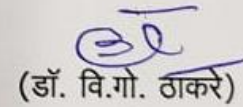 (डॉ. वि.गो. ठाकरे)